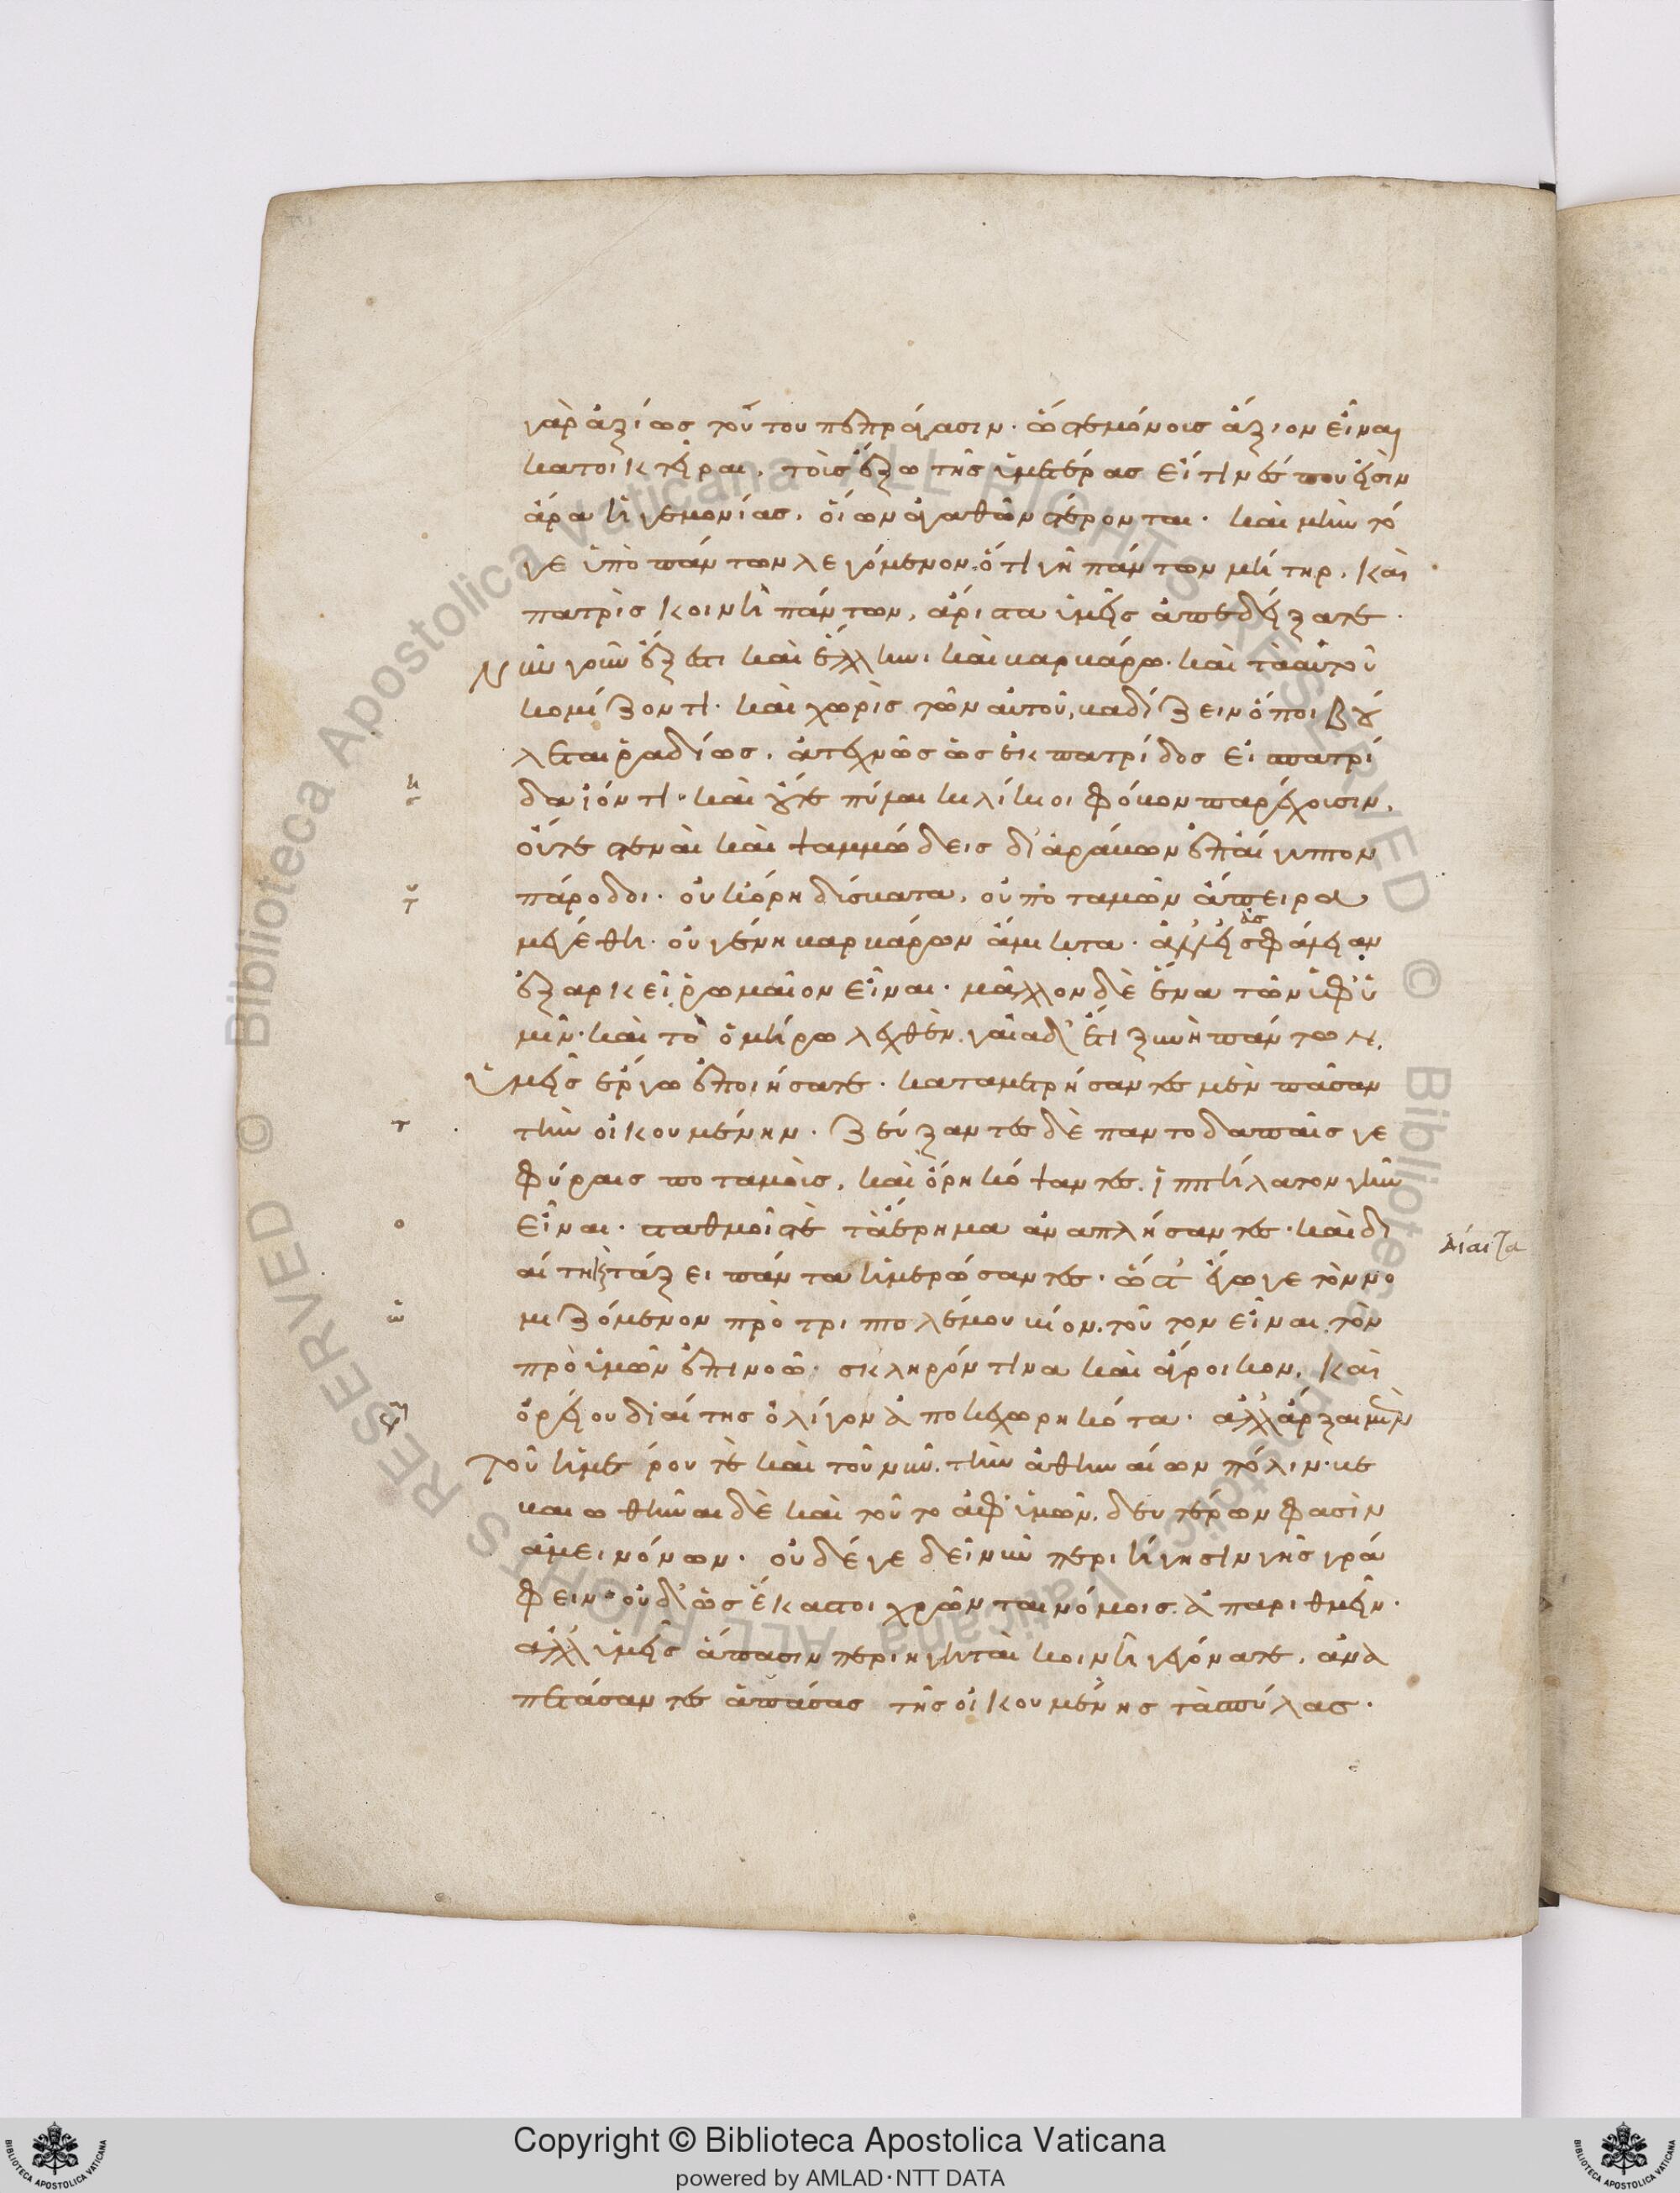 γὰρ ἀξίως τούτου πεπράγασιν· ὥστε μόνους ἄξιον εἶναι
κατοικτεῖραι, τοῖς ἔξω τῆς ὑμετέρας εἴ τινές που εἰσὶν
ἄρα ἡγεμονίας, οἵων ἀγαθῶν στέρονται· καὶ μὴν τό
γε ὑπὸ πάντων λεγόμενον, ὅτι γῆ πάντων μήτηρ, καὶ
πατρὶς κοινὴ πάντων, ἄριστα ὑμεῖς ἀπεδείξατε·
Νῦν γοῦν ἔξεστι καὶ ἕλληνι καὶ βαρβάρω· καὶ τὰ αὑτοῦ
κομίζοντι· καὶ χωρὶς τῶν αὑτοῦ, βαδίζειν ὅποι βού
λεται ῥαδίως, ἀτεχνῶς ὡς ἐκ πατρίδος εἰς πατρί
δα ἰόντι· καὶ οὔτε πύλαι κιλίκιοι φόβον παρέχουσιν,
οὔτε στεναὶ καὶ ψαμμώδεις δι' ἀράβων ἐπ' αἴγυπτον
πάροδοι· οὐκ ὄρη δύσβατα, οὐ ποταμῶν ἄπειρα
μεγέθη· οὐ γένη βαρβάρων ἄμικτα· ἀλλ' εἰς ἀσφάλειαν
ἐξαρκεῖ ῥωμαῖον εἶναι· μᾶλλον δὲ ἕνα τῶν ὑφ' ὑ
μῖν· καὶ τὸ ὁμήρω λεχθὲν, γαῖα δ' ἔτι ξυνὴ πάντων,
ὑμεῖς ἔργω ἐποιήσατε· καταμετρήσαντες μὲν πᾶσαν
τὴν οἰκουμένην· ζεύξαντες δὲ παντοδαπαῖς γε
φύραις ποταμοὺς, καὶ ὄρη κόψαντες, ἱππήλατον γῆν
εἶναι· σταθμοῖς τε τὰ ἔρημα ἀναπλήσαντες· καὶ δι
αίτη καὶ τάξει πάντα ἡμερώσαντες· ὥστ' ἔγωγε τὸν νο
μιζόμενον πρὸ τριπτολέμου βίον, τοῦτον εἶναι τὸν
πρὸ ὑμῶν ἐπινοῶ· σκληρόν τινα καὶ ἄγροικον, καὶ
ὀρείου διαίτης ὀλίγον ἀποκεχωρηκότα· ἀλλ' ἄρξαι μὲν
τοῦ ἡμέρου τε καὶ τοῦ νῦν, τὴν ἀθηναίων πόλιν· βε
βαιωθῆναι δὲ καὶ τοῦτο ὑφ' ὑμῶν, δευτέρων φασὶν
ἀμεινόνων· οὐδέ γε δεῖ νῦν περιήγησιν γῆς γρά
φειν· οὐδ' ὡς ἕκαστοι χρῶνται νόμοις ἀπαριθμεῖν·
ἀλλ' ὑμεῖς ἅπασιν περιηγηταὶ κοινῆ γεγόνατε, ἀνα
πετάσαντες ἁπάσας τῆς οἰκουμένης τὰς πύλας·
δίαιτα